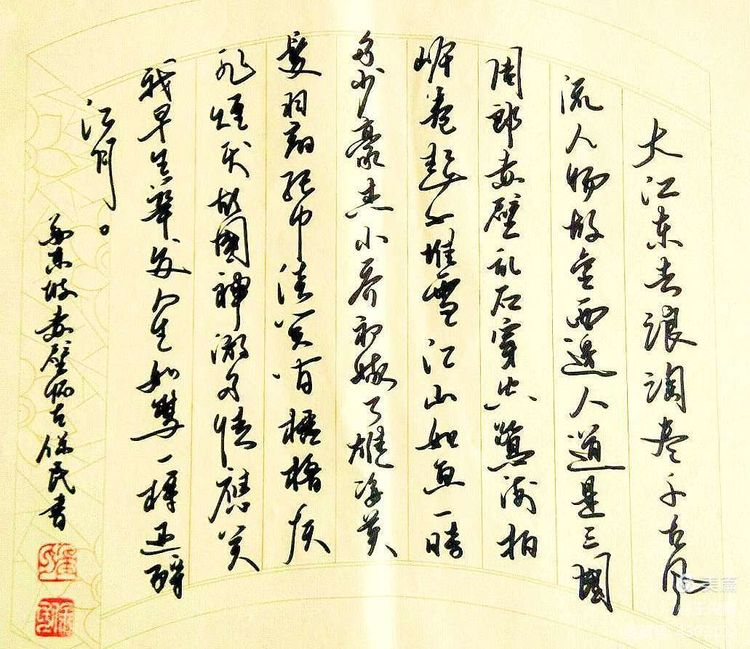 大江东去浪淘尽千古风
流人物故垒西邊人道是三國
周郎赤壁乱石穿空驚涛拍
岸卷起千堆雪江山如画一時
多少豪杰小乔初嫁了雄姿英
发羽扇纶巾谈笑间樯橹灰
飞煙灭故國神游多情應笑
我早生華发人生如夢一樽还酹
江月。
东坡赤壁怀古保民書
美篇